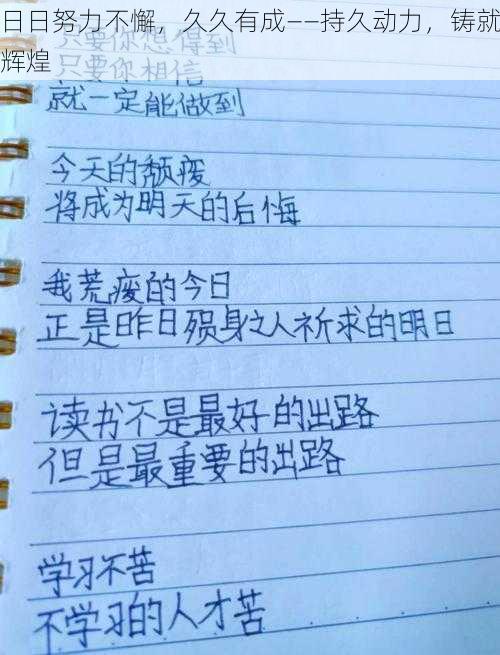 日日努力不懈，久久有成——持久动力，铸就
辉煌
只要你想得到
只要你相信
就一定能做到
今天的颓废
将成为明天的后悔
我荒废的今日
正是昨日殒身之人祈求的明日
读书不是最好的出路
但是最重要的出路
学习不苦
不学习的人才苦